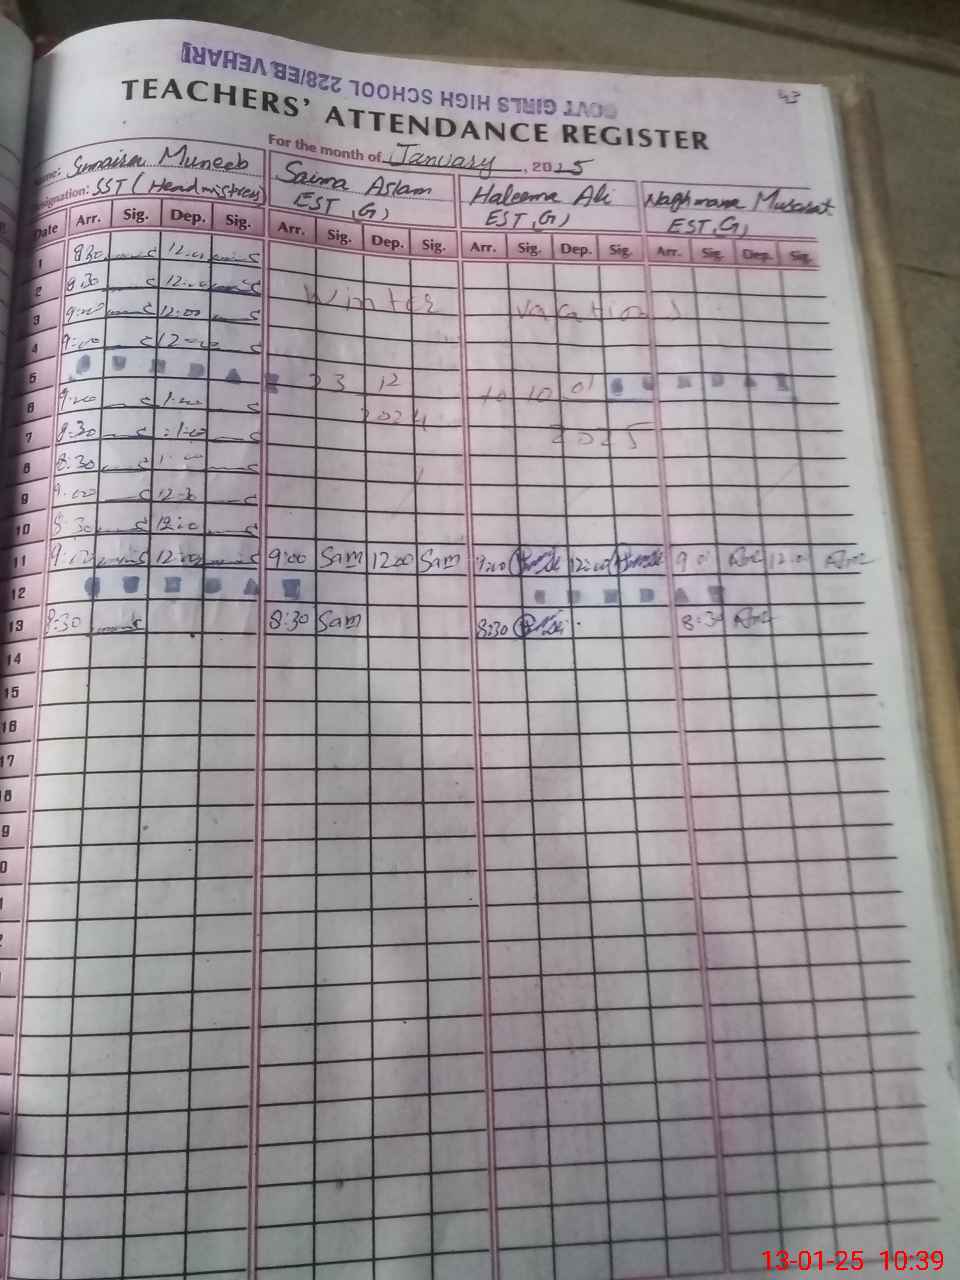 GOVT GIRLS HIGH SCHOOL 228/EB, VEHARI
43
TEACHERS' ATTENDANCE REGISTER
For the month of January, 2025
Name: Sumaira Muneeb
Designation: SST (Headmistress)
Saima Aslam
EST, G,
Haleema Ali
EST, G,
Naghmana Musarat
EST, G,
Date Arr. Sig. Dep. Sig. Arr. Sig. Dep. Sig. Arr. Sig. Dep. Sig. Arr. Sig. Dep. Sig.
1 8:30 12:00
2 8:30 12:00 Winter vacations
3 9:00 12:00
4 9:00 12:00
5 S U N D A Y 23 12 to 10 01 S U N D A Y
6 9:00 1:00 2024 2025
7 8:30 1:00
8 8:30 1:00
9 9:00 12:30
10 8:30 12:00
11 9:00 12:00 9:00 Sam 12:00 Sam 9:00 12:00 9:00 12:00
12 S U N D A Y S U N D A Y
13 8:30 8:30 Sam 8:30 8:30
14
15
16
17
13-01-25 10:39